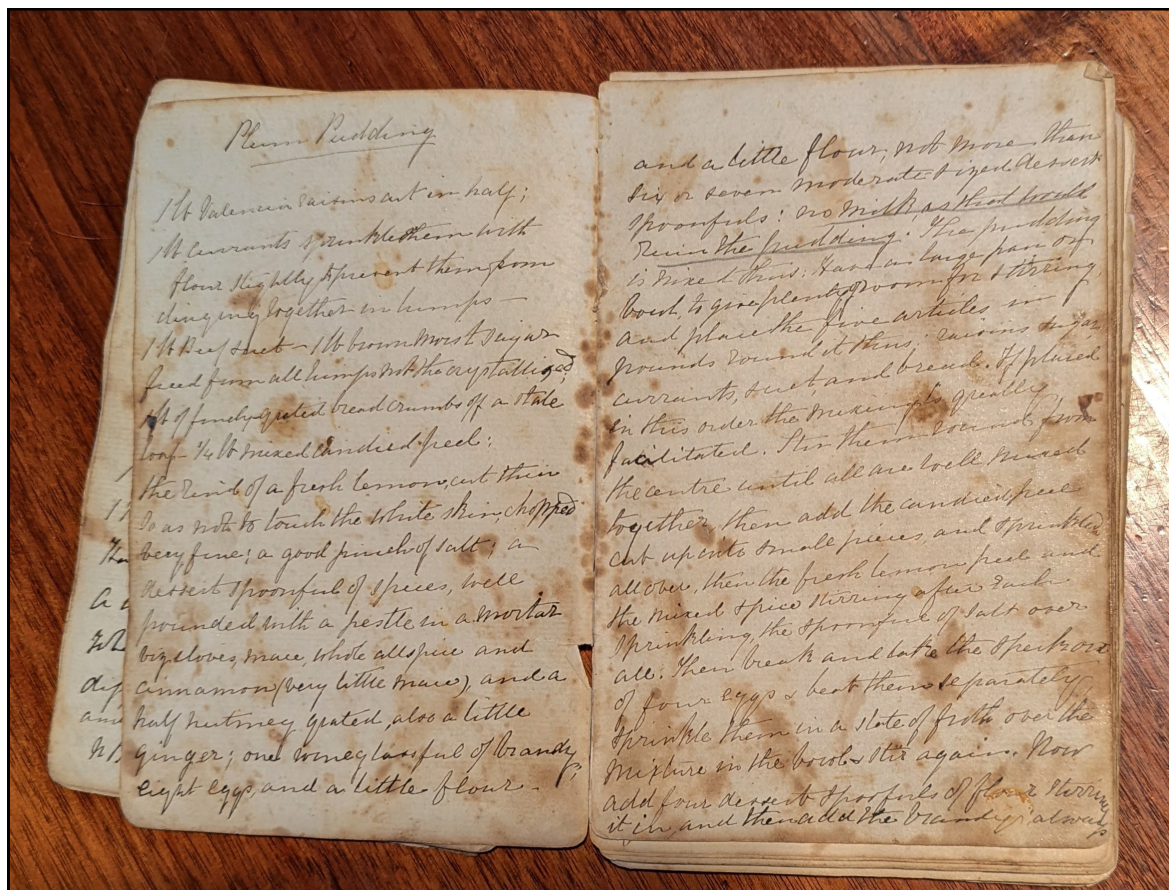 Plum Pudding
1 lb Valencia raisins cut in half;
1 lb currants sprinkle them with
flour slightly to prevent them from
clinging together in lumps —
1 lb Beef suet — 1 lb brown moist sugar
freed from all lumps not the crystallized;
1 lb of finely grated bread crumbs off a stale
loaf — 1/4 lb mixed candied peel;
the rind of a fresh lemon, cut thin
so as not to touch the white skin, chopped
very fine; a good pinch of salt; a
dessert spoonful of spices, well
pounded with a pestle in a mortar
viz cloves, mace, whole allspice and
cinnamon (very little mace), and a
half nutmeg grated, also a little
ginger; one wineglassful of brandy;
eight eggs, and a little flour —
and a little flour, not more than
six or seven moderate sized dessert
spoonfuls: no milk as that would
ruin the pudding. The pudding
is mixed thus: Have a large pan or
bowl, to give plenty of room for stirring
and place the five articles in
pounds round it thus: raisins sugar,
currants, suet and bread. If placed
in this order the mixing is greatly
facilitated. Stir them round from
the centre until all are well mixed
together, then add the candied peel
cut up into small pieces, and sprinkled
all over, then the fresh lemon peel and
the mixed spice stirring after each
sprinkling, the spoonful of salt over
all. Then break and take the specks out
of four eggs & beat them separately
sprinkle them in a state of froth over the
mixture in the bowl & stir again. Now
add four dessert spoonfuls of flour stirring
it in, and then add the brandy, always